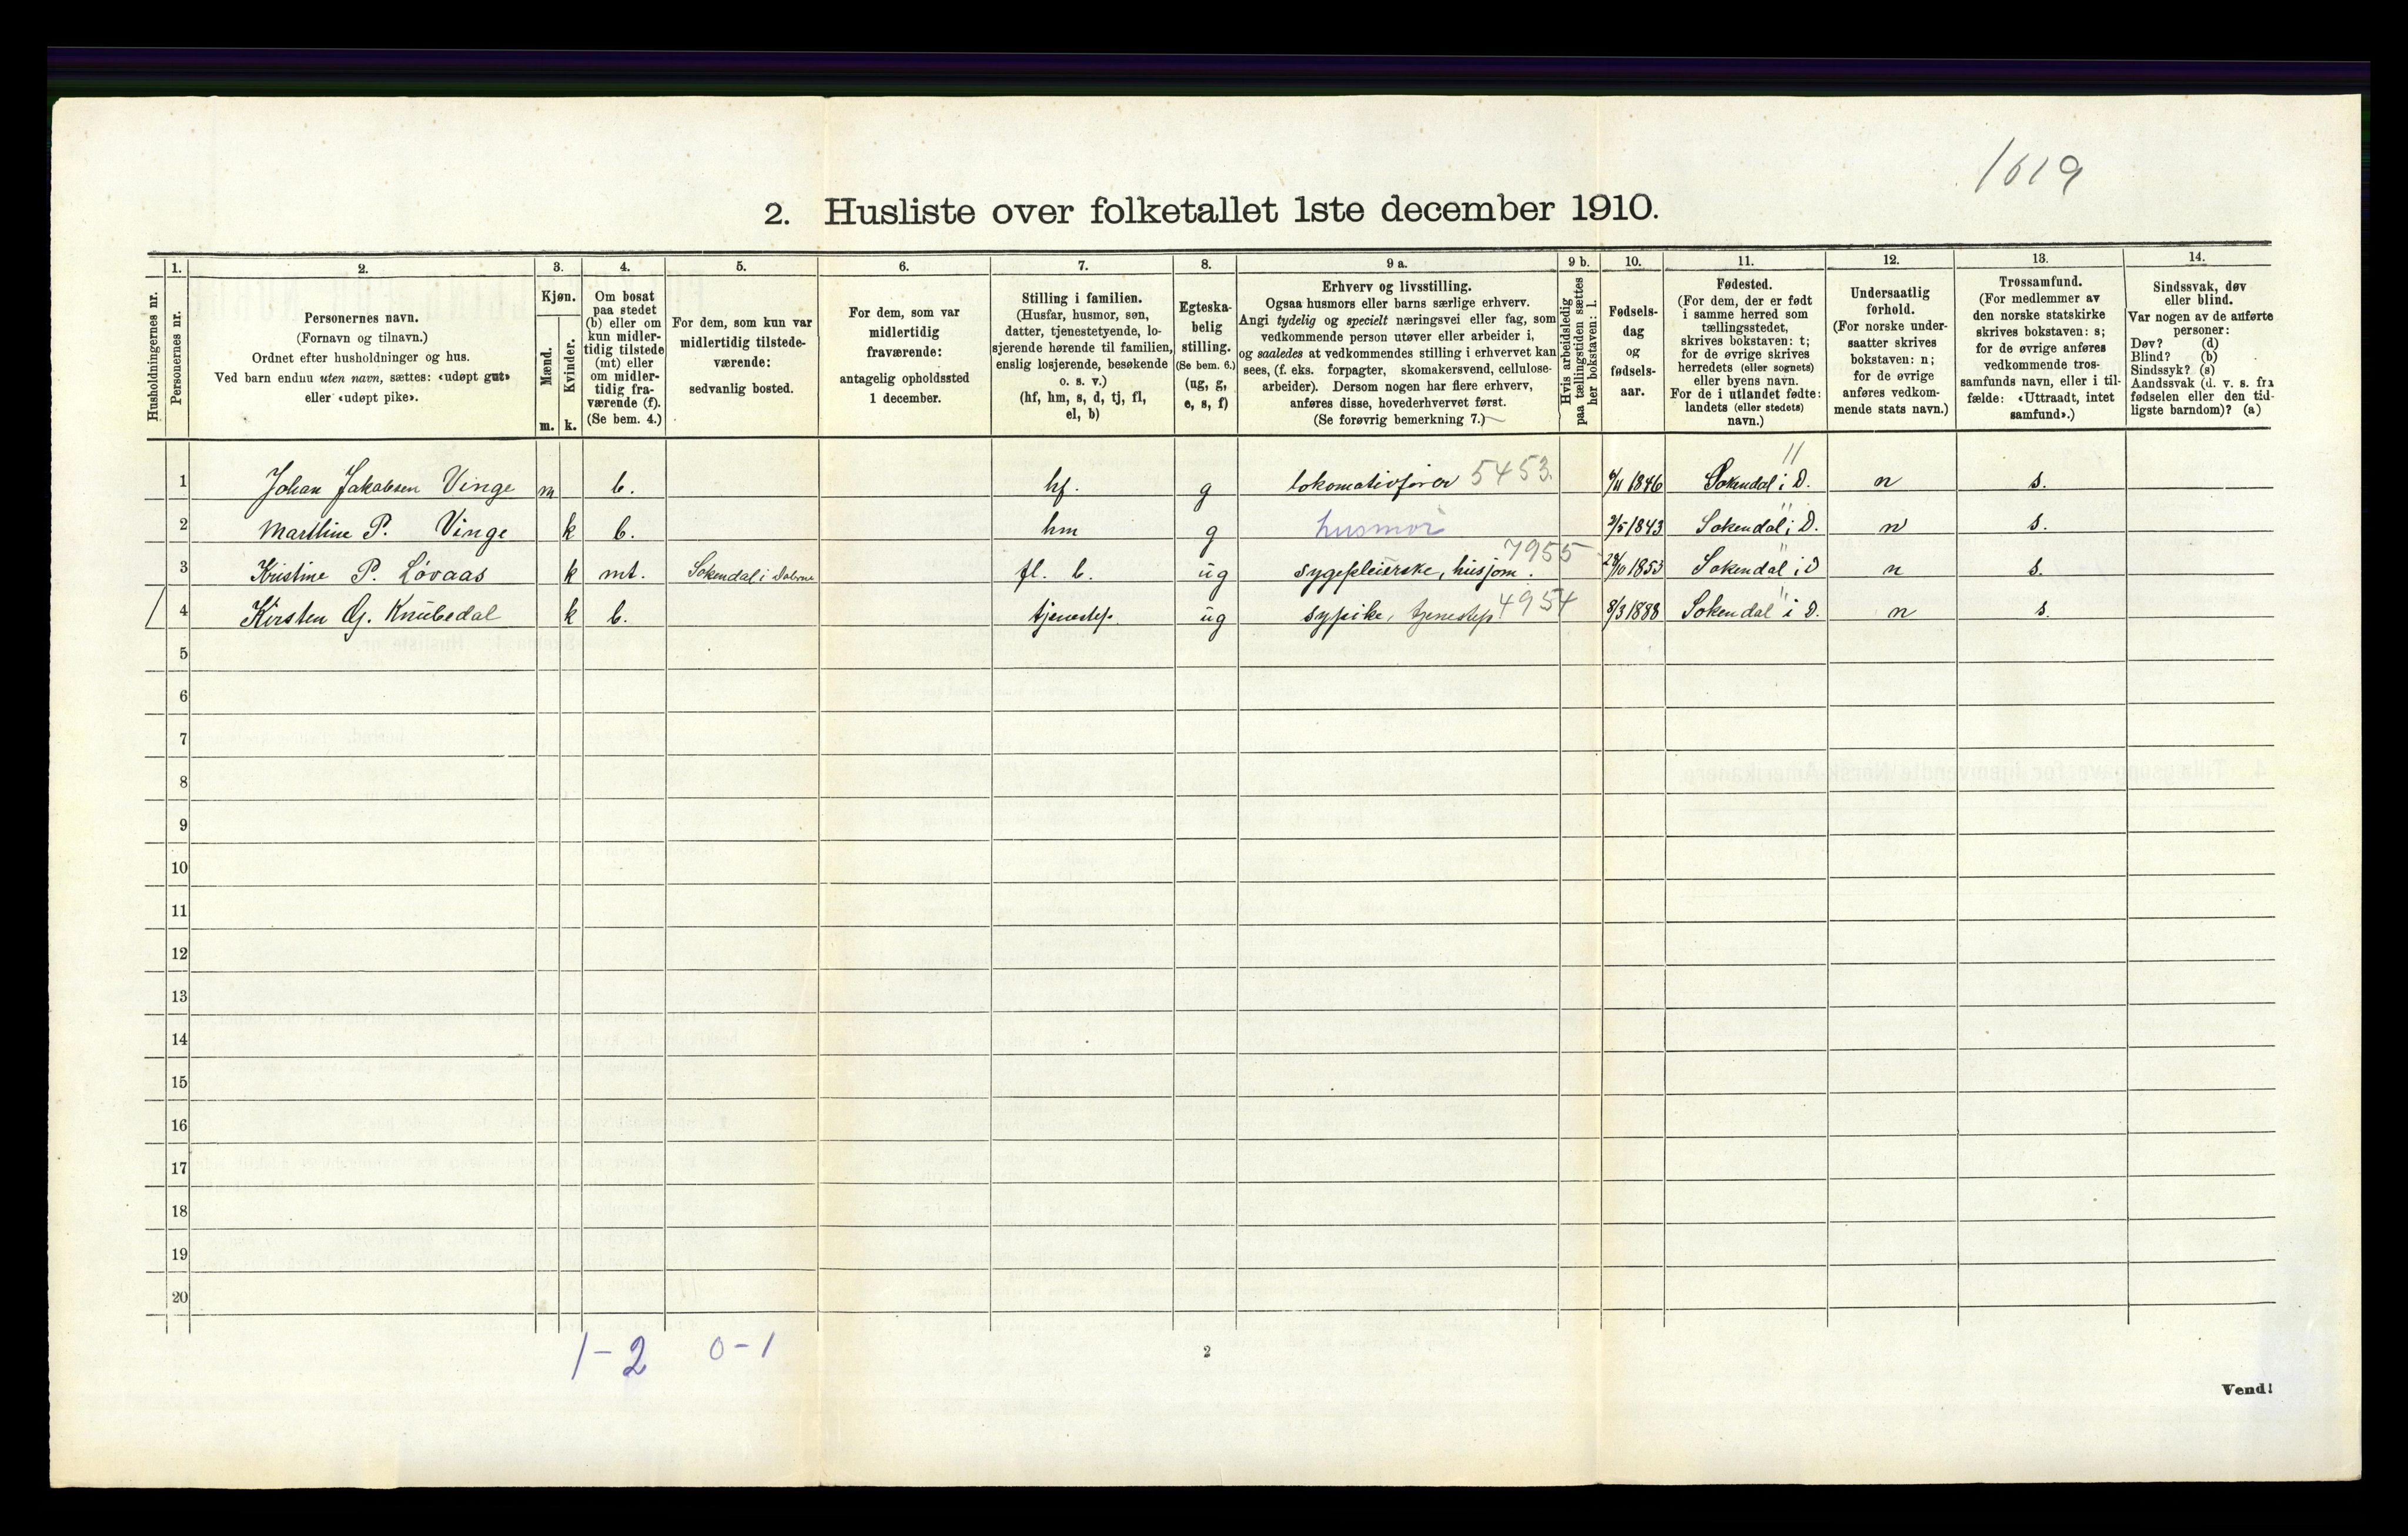 1619
2. Husliste over folketallet 1ste december 1910.
Husholdningernes nr.
1.
Personernes nr.
2.
Personernes navn.
(Fornavn og tilnavn.)
Ordnet efter husholdninger og hus.
Ved barn endnu uten navn, sættes: «udøpt gut»
eller «udøpt pike».
3.
Kjøn.
Mænd.
Kvinder.
m. k.
4.
Om bosat
paa stedet
(b) eller om
kun midler-
tidig tilstede
(mt) eller
om midler-
tidig fra-
værende (f).
(Se bem. 4.)
5.
For dem, som kun var
midlertidig tilstede-
værende:
sedvanlig bosted.
6.
For dem, som var
midlertidig
fraværende:
antagelig opholdssted
1 december.
7.
Stilling i familien.
(Husfar, husmor, søn,
datter, tjenestetyende, lo-
sjerende hørende til familien,
enslig losjerende, besøkende
o. s. v.)
(hf, hm, s, d, tj, fl,
el, b)
8.
Egteska-
belig
stilling.
(Se bem. 6.)
(ug, g,
e, s, f)
9 a.
Erhverv og livsstilling.
Ogsaa husmors eller barns særlige erhverv.
Angi tydelig og specielt næringsvei eller fag, som
vedkommende person utøver eller arbeider i,
og saaledes at vedkommendes stilling i erhvervet kan
sees, (f. eks. forpagter, skomakersvend, cellulose-
arbeider). Dersom nogen har flere erhverv,
anføres disse, hovederhvervet først.
(Se forøvrig bemerkning 7.)
9 b.
Hvis arbeidsledig
paa tællingstiden sættes
her bokstaven: l.
10.
Fødsels-
dag
og
fødsels-
aar.
11.
Fødested.
(For dem, der er født
i samme herred som
tællingsstedet,
skrives bokstaven: t;
for de øvrige skrives
herredets (eller sognets)
eller byens navn.
For de i utlandet fødte:
landets (eller stedets)
navn.)
12.
Undersaatlig
forhold.
(For norske under-
saatter skrives
bokstaven: n;
for de øvrige
anføres vedkom-
mende stats navn.)
13.
Trossamfund.
(For medlemmer av
den norske statskirke
skrives bokstaven: s;
for de øvrige anføres
vedkommende tros-
samfunds navn, eller i til-
fælde: «Uttraadt, intet
samfund».)
14.
Sindssvak, døv
eller blind.
Var nogen av de anførte
personer:
Døv? (d)
Blind? (b)
Sindssyk? (s)
Aandssvak (d. v. s. fra
fødselen eller den tid-
ligste barndom)? (a)
1 Johan Jakobsen Vinge m b. hf. g lokomotivfører 5453. /11 1846 Sokendal i D. 11 n s.
2 Marthine P. Vinge k b. hm g husmor 2/5 1843 Sokendal i D. " n s.
3 Kristine P. Lóvaas k mt. Sokendal i Dalerne fl. b. ug sygepleierske, husjom. 7955 /10 1853 Sokendal i D " n s.
4 Kirsten G. Knubedal k b. tjenestep. ug sypike, tjenestep 4954 8/3 1888 Sokendal i D. " n s.
5
6
7
8
9
10
11
12
13
14
15
16
17
18
19
20
1-2 0-1
2
Vend!